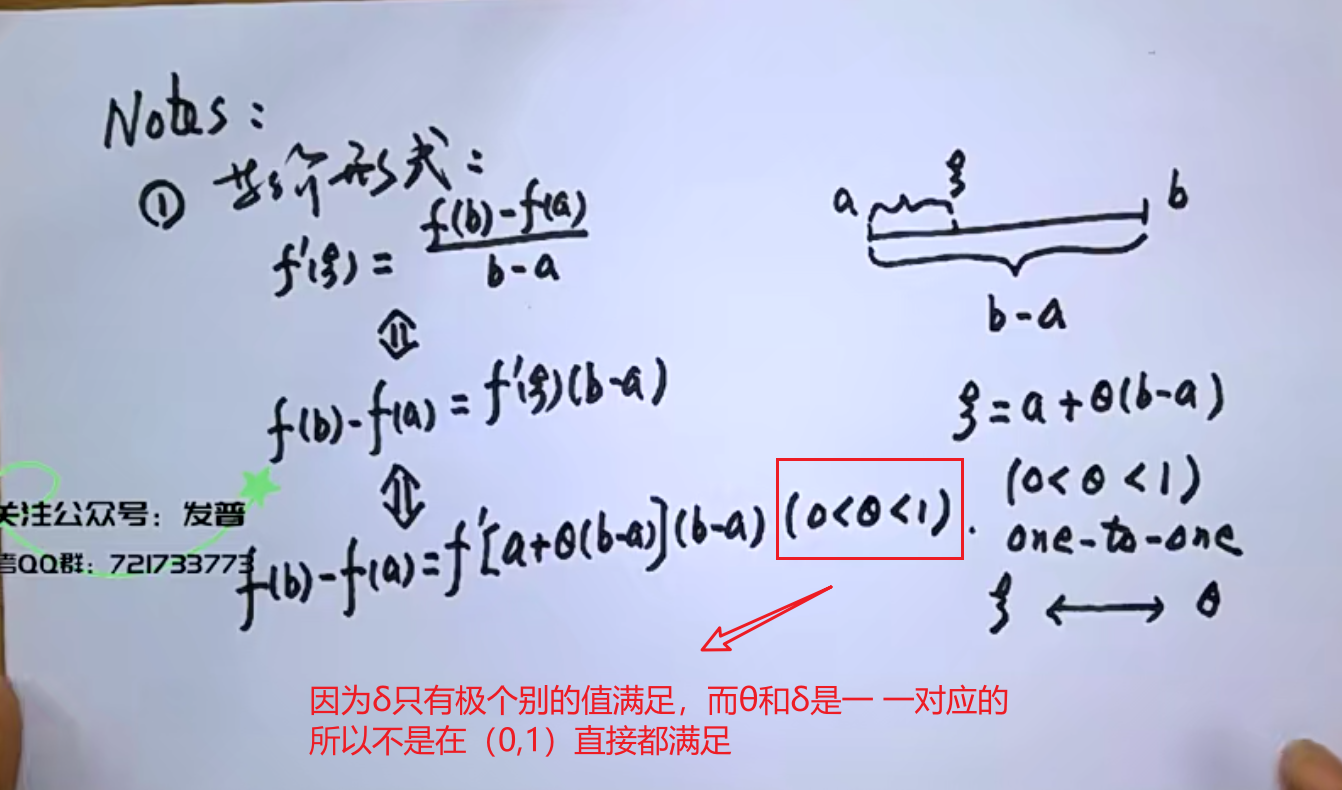 Notes:
① 等价形式:
f'(ξ) = \frac{f(b)-f(a)}{b-a}
⇕
f(b)-f(a) = f'(ξ)(b-a)
⇕
f(b)-f(a)=f'[a+θ(b-a)](b-a) (0<θ<1).
a ξ b
b-a
ξ=a+θ(b-a)
(0<θ<1)
one-to-one
ξ ⟷ θ
关注公众号：发普
QQ群：721733773
因为δ只有极个别的值满足，而θ和δ是一 一对应的
所以不是在（0,1）直接都满足